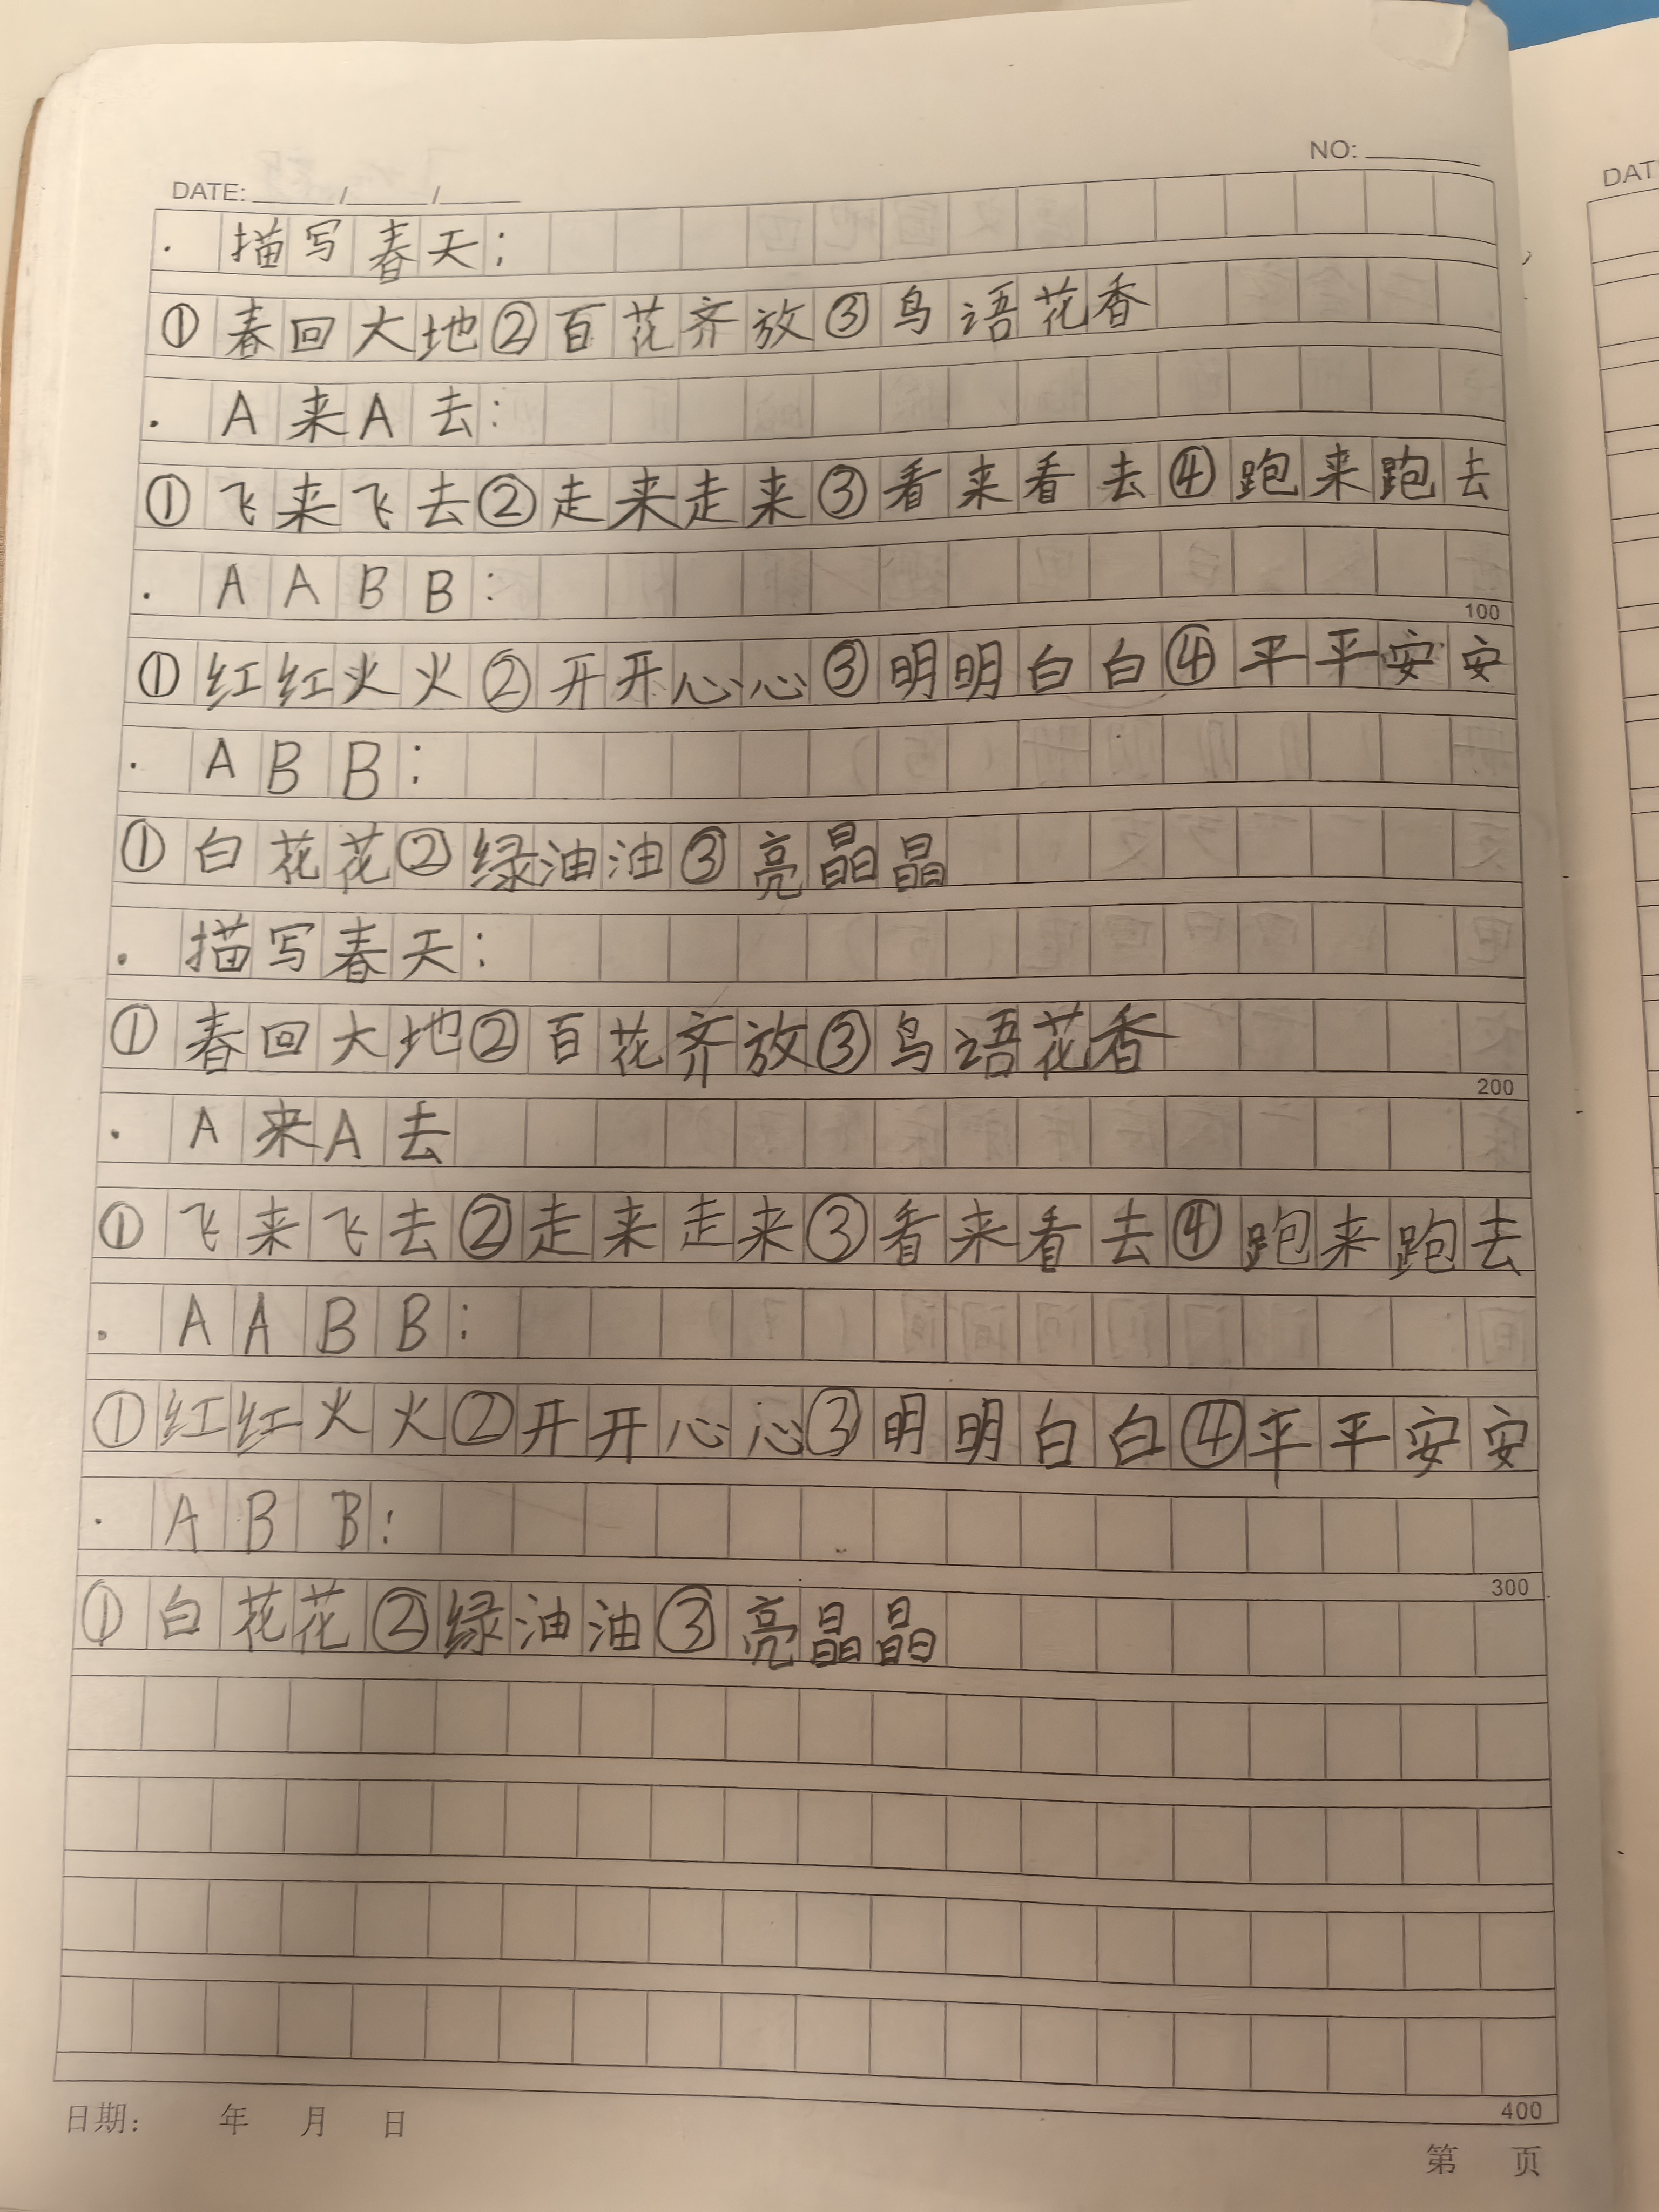 NO:
DATE: / /
DAT
· 描写春天:
①春回大地②百花齐放③鸟语花香
· A来A去:
①飞来飞去②走来走来③看来看去④跑来跑去
· AABB:
100
①红红火火②开开心心③明明白白④平平安安
· ABB:
①白花花②绿油油③亮晶晶
· 描写春天:
①春回大地②百花齐放③鸟语花香
200
· A来A去
①飞来飞去②走来走来③看来看去④跑来跑去
· AABB:
①红红火火②开开心心③明明白白④平平安安
· ABB:
300
①白花花②绿油油③亮晶晶
400
日期: 年 月 日
第 页